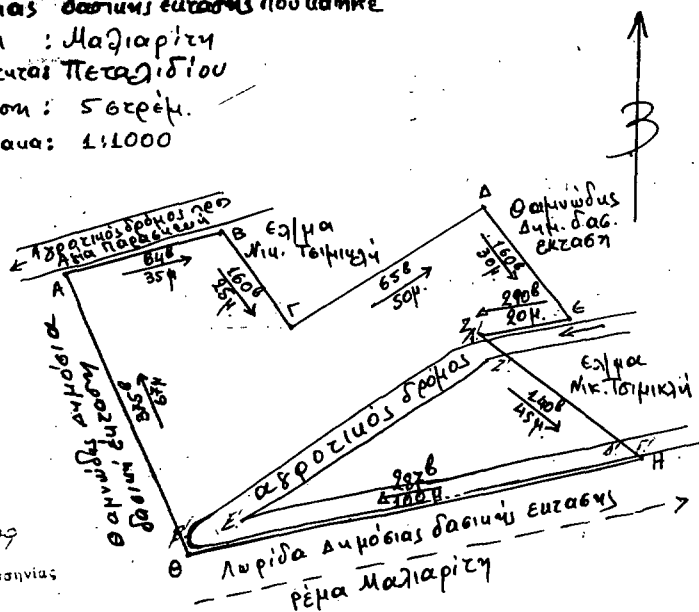 δασικής εκτασης που κάηκε
: Μαλιαρίτη
Πεταλιδίου
: 5 στρέμ.
: 1:1000
Β
Αγροτικός δρόμος προς
Αγια Παρασκευή
Α
84β
35μ
Β
Ελ/μα
Νικ. Τσιμικλή
160β
25μ
Γ
65β
50μ.
Δ
160β
30μ.
Θαμνώδης
Δημ. δασ.
εκταση
290β
20μ.
Ε
Ζ
Ζ'
Ελ/μα
Νικ. Τσιμικλή
140β
45μ.
Η
αγροτικός δρόμος
Θαμνώδης δημόσια
δασική
375β
67μ
287β
100μ
Ε'
Θ
Λωρίδα Δημόσιας δασικής εκτασης
ρέμα Μαλιαρίτη
σσηνίας